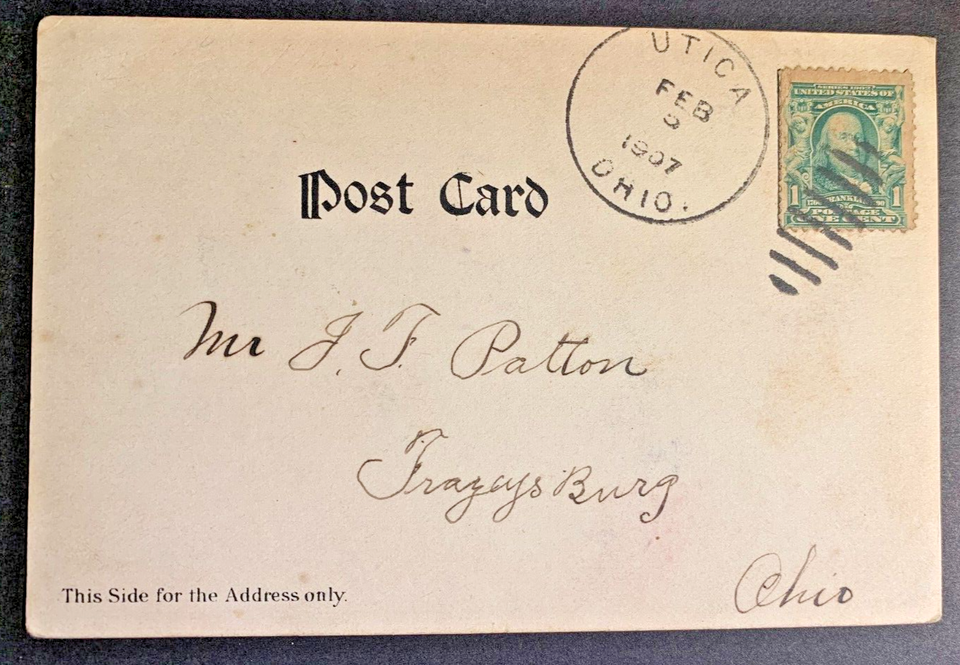 UTICA
FEB
5
1907
OHIO.
SERIES 1902
UNITED STATES OF
AMERICA
1 FRANKLIN 1
POSTAGE
ONE CENT
Post Card
Mr J. F. Patton
Frazeysburg
Ohio
This Side for the Address only.